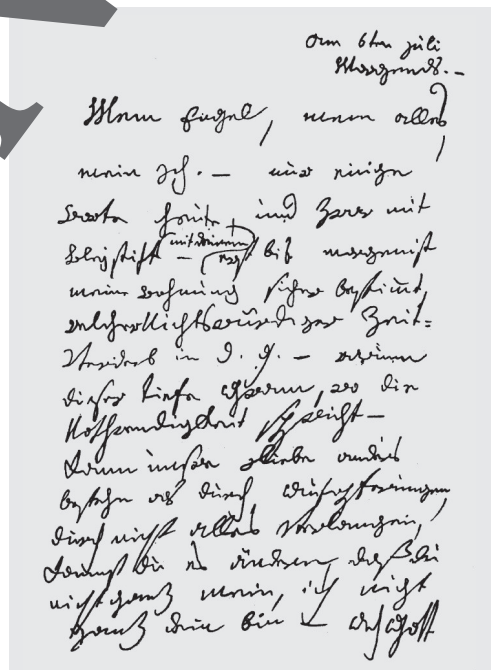 am 6ten juli
Morgends. –
Mein Engel, mein alles
mein Ich. – nur einige
Worte heute, und zwar mit
Bleystift – (mit deinem) erst bis morgen ist
meine Wohnung sicher bestimmt,
welcher Nichtswürdiger Zeit=
Verderb in d. g. – warum
dieser tiefe Gram, wo die
Nothwendigkeit spricht –
Kann unsre Liebe anders
bestehn als durch Aufopferungen,
durch nicht alles verlangen,
kannst du es ändern, daß du
nicht ganz mein, ich nicht
ganz dein bin – Ach Gott